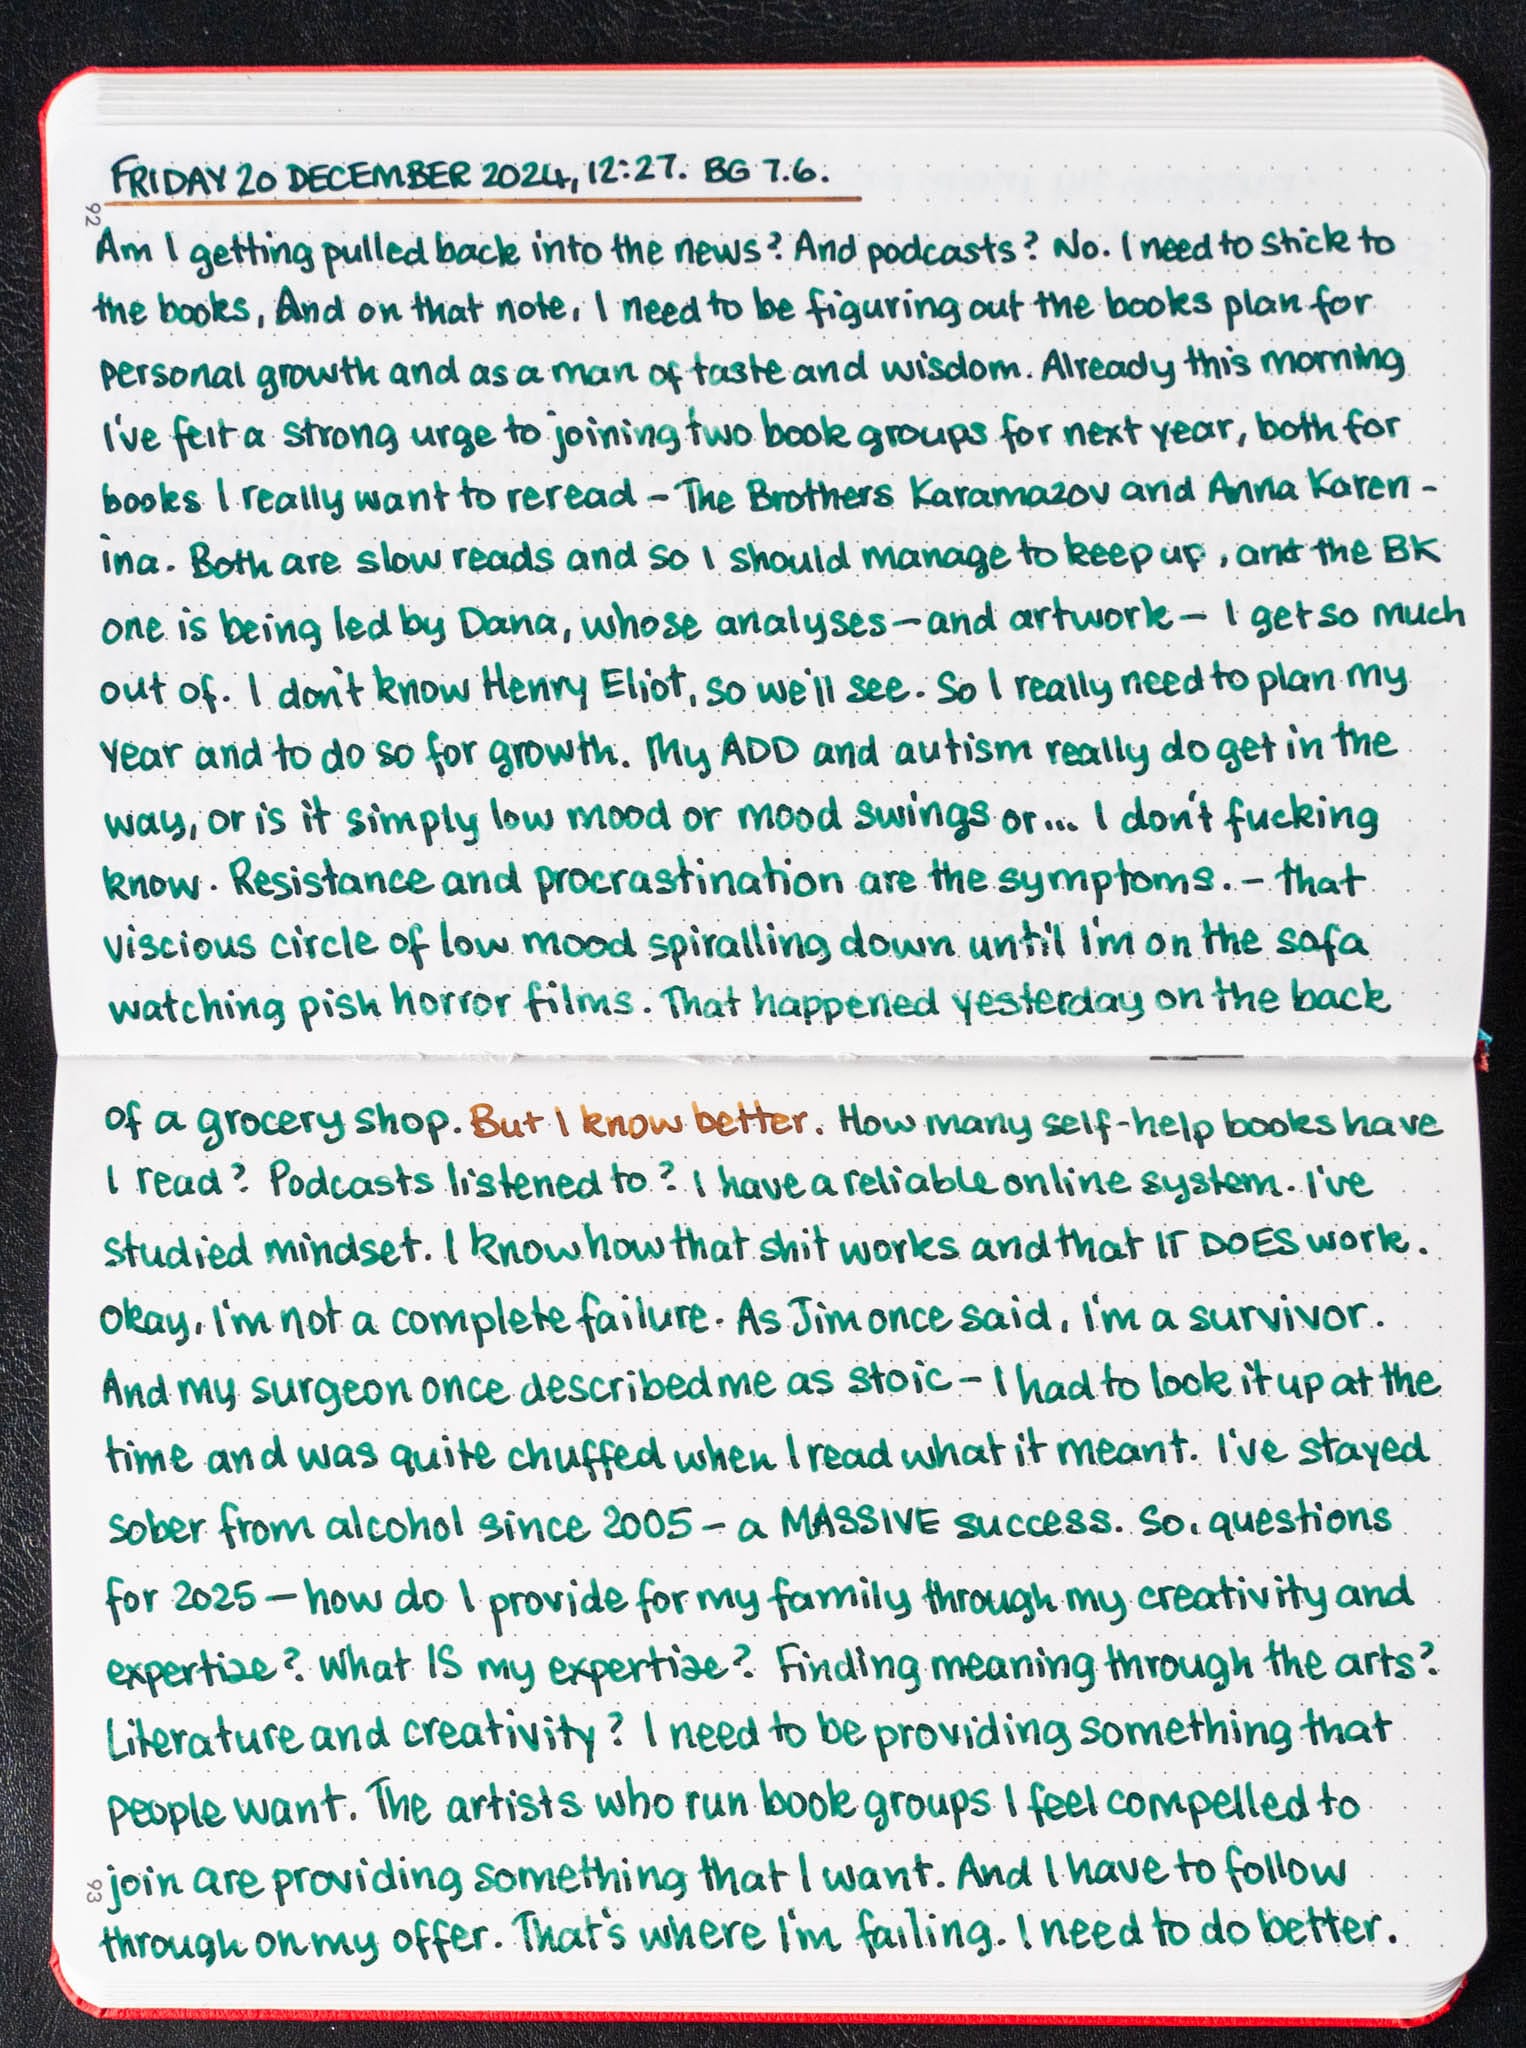 FRIDAY 20 DECEMBER 2024, 12:27. BG 7.6.
92
Am I getting pulled back into the news? And podcasts? No. I need to stick to
the books, And on that note, I need to be figuring out the books plan for
personal growth and as a man of taste and wisdom. Already this morning
I've felt a strong urge to joining two book groups for next year, both for
books I really want to reread – The Brothers Karamazov and Anna Karen-
ina. Both are slow reads and so I should manage to keep up, and the BK
one is being led by Dana, whose analyses – and artwork – I get so much
out of. I don't know Henry Eliot, so we'll see. So I really need to plan my
year and to do so for growth. My ADD and autism really do get in the
way, or is it simply low mood or mood swings or... I don't fucking
know. Resistance and procrastination are the symptoms. – that
viscious circle of low mood spiralling down until I'm on the sofa
watching pish horror films. That happened yesterday on the back
of a grocery shop. But I know better. How many self-help books have
I read? Podcasts listened to? I have a reliable online system. I've
studied mindset. I know how that shit works and that IT DOES work.
Okay, I'm not a complete failure. As Jim once said, I'm a survivor.
And my surgeon once described me as stoic – I had to look it up at the
time and was quite chuffed when I read what it meant. I've stayed
sober from alcohol since 2005 – a MASSIVE success. So, questions
for 2025 – how do I provide for my family through my creativity and
expertise? What IS my expertise? Finding meaning through the arts?
Literature and creativity? I need to be providing something that
people want. The artists who run book groups I feel compelled to
join are providing something that I want. And I have to follow
93
through on my offer. That's where I'm failing. I need to do better.